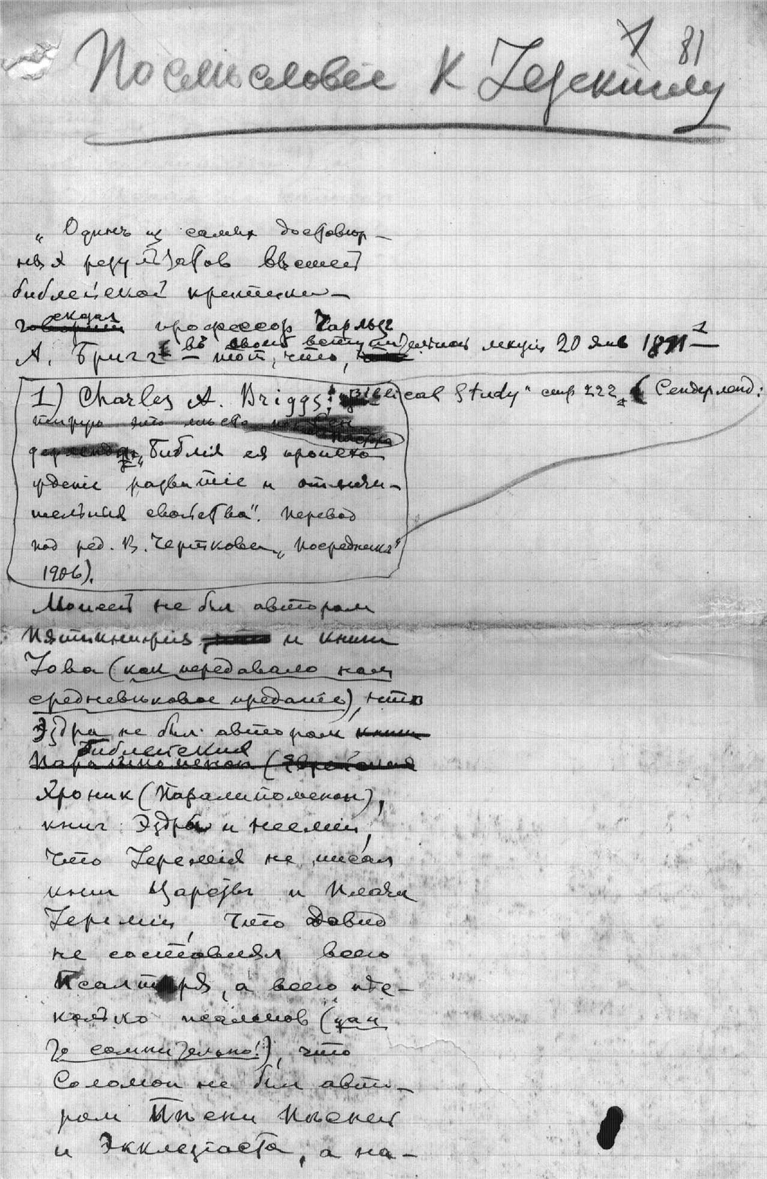 81
Послесловіе к Іезекіилу
„Один из самых достовер-
ных результатов высшей
библейской критики —
сказал профессор Чарльз
А. Бригг въ своей вступительной лекціи 20 янв 1891 1
— тот, что,
1) Charles A. Briggs: „Biblical Study" стр 222. (Сендерленд:
„Библія ея происхо
жденіе развитіе и отличи-
тельныя свойства". Перевод
под ред. В. Черткова „Посредника"
1906).
Моисей не был автором
Пятикнижія и книги
Іова (как передавало нам
средневѣковое преданіе), что
Эздра не был автором
библейских
Хроник (Паралипоменон),
книг Эздры и Неэміи,
что Іеремія не писал
книг Царств и Плача
Іереміи, что Давид
не составлял всего
Псалтыря, а всего нѣс-
колько псалмов (да и
то сомнительно!), что
Соломон не был авто-
ром Пѣсни Пѣсней
и Экклезіаста, а на-